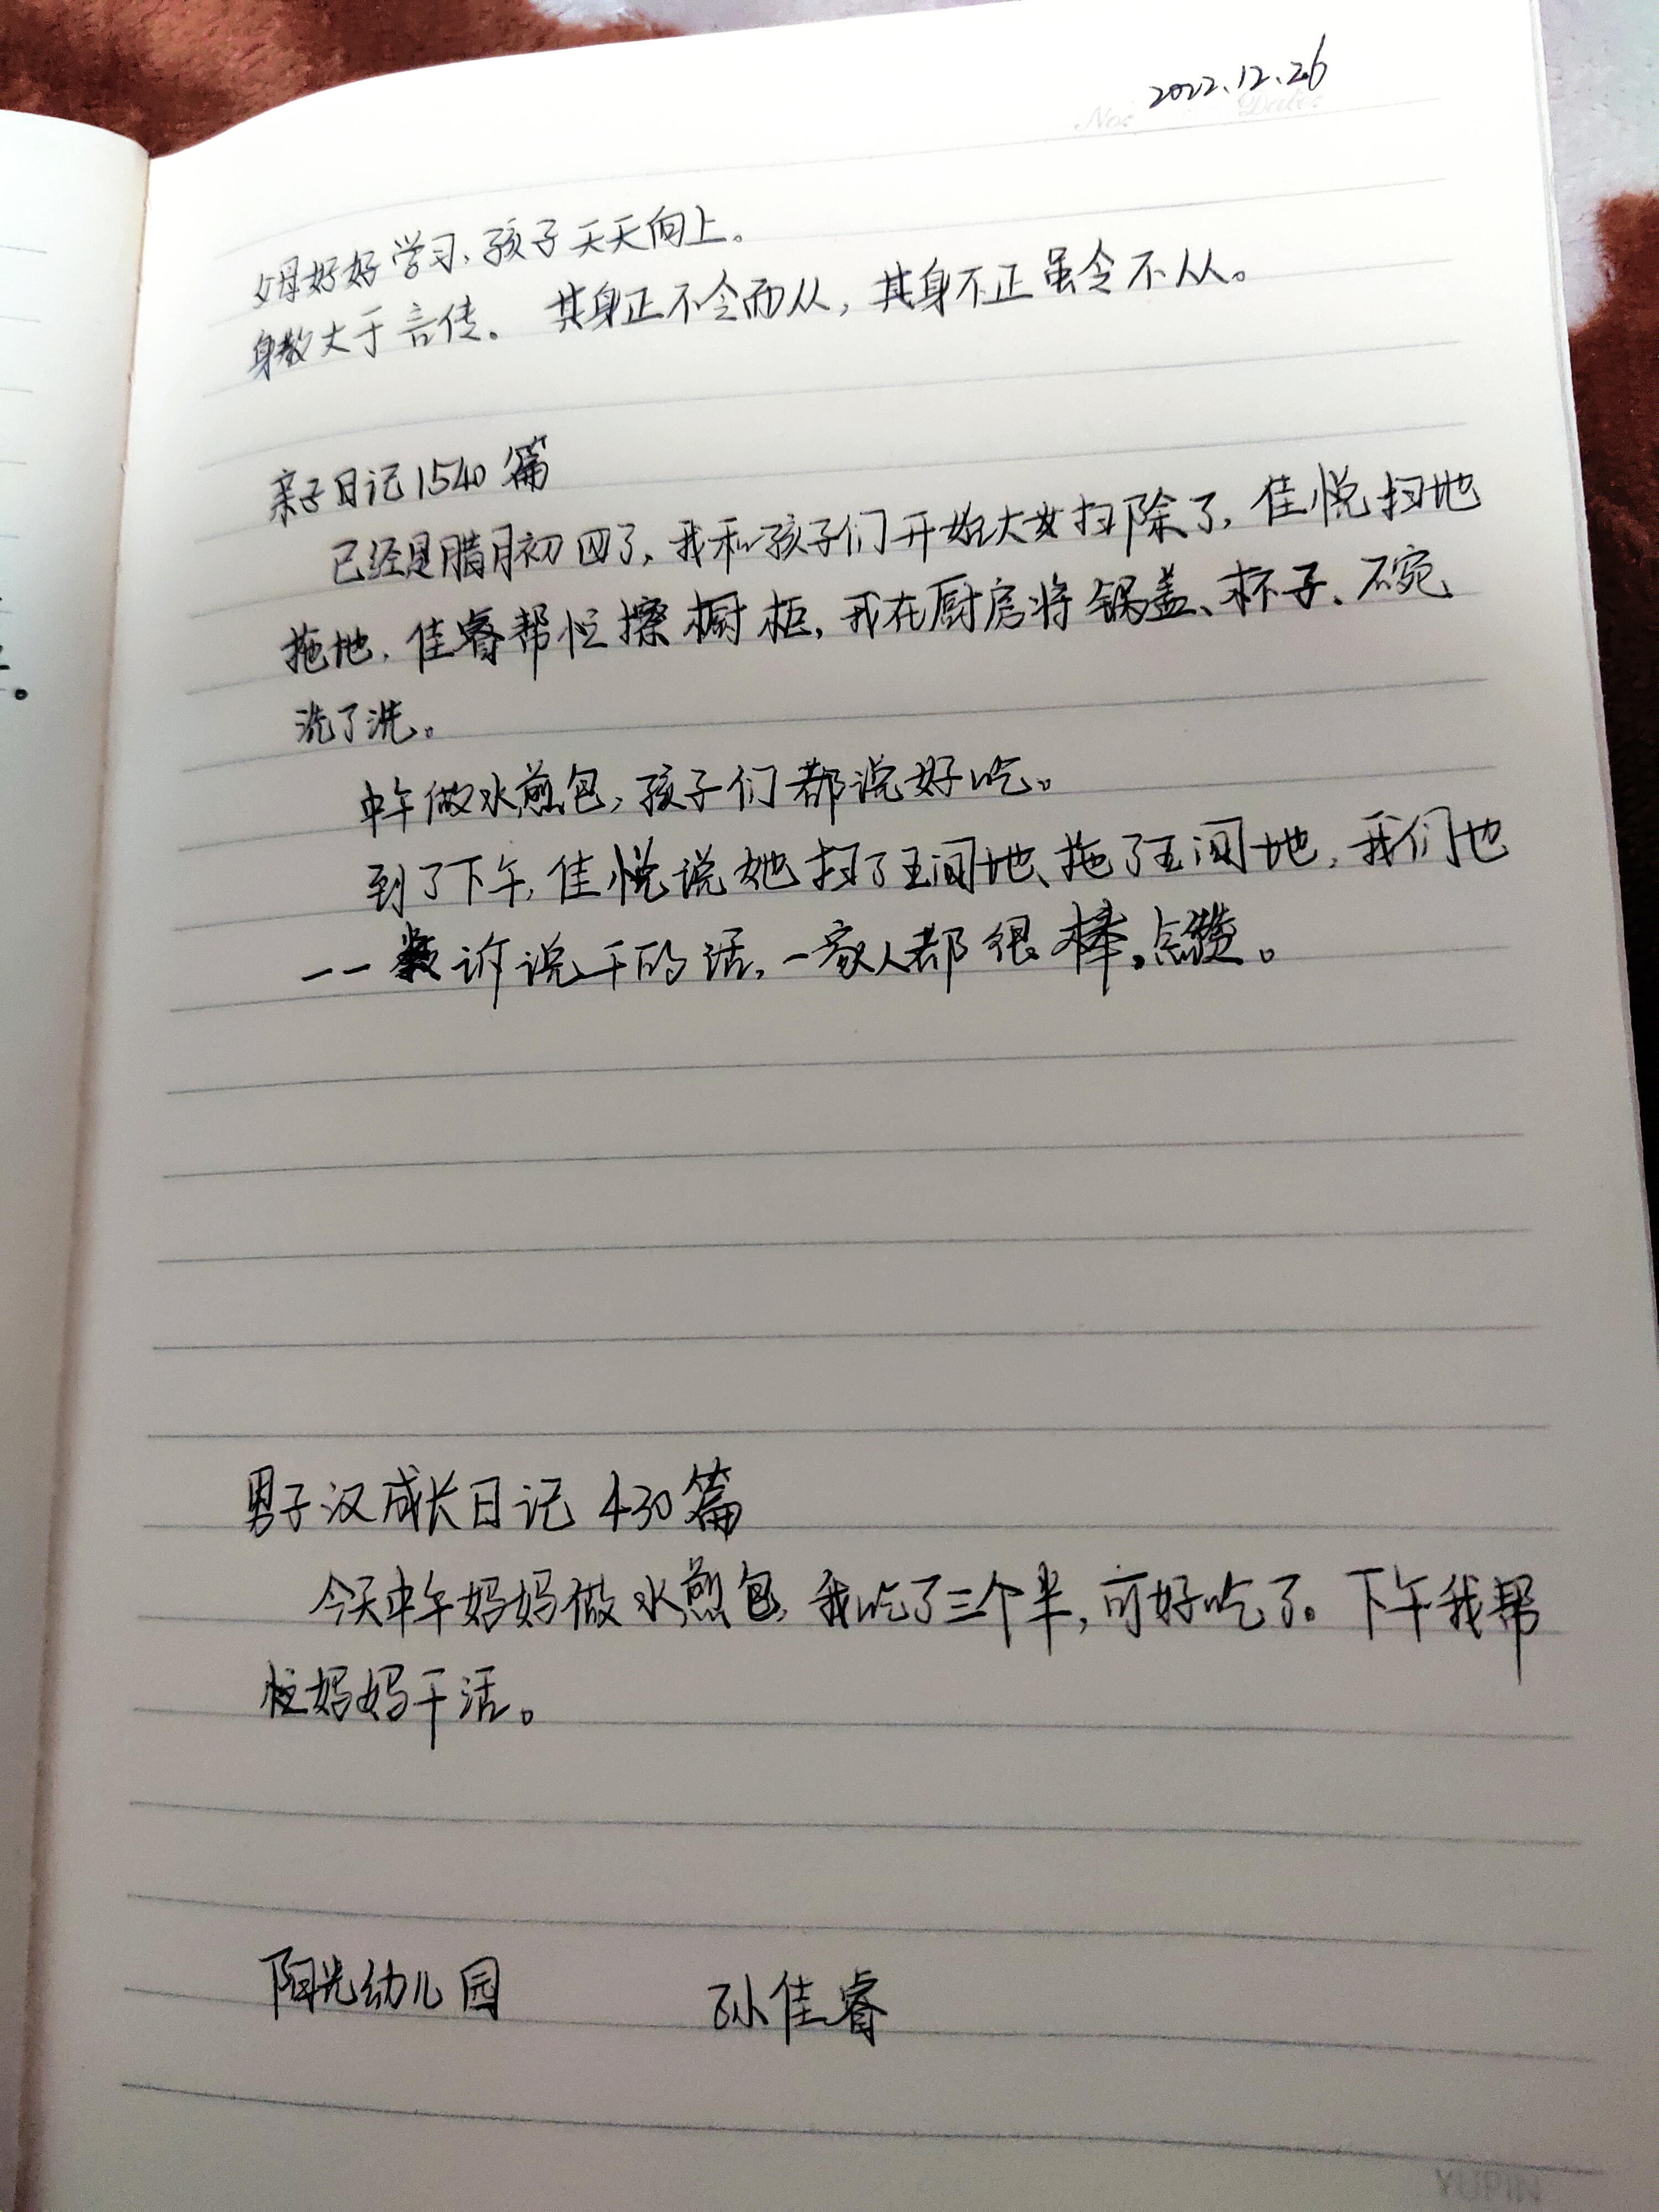 2022.12.26
No: Date:
父母好好学习，孩子天天向上。
身教大于言传。其身正不令而从，其身不正虽令不从。
亲子日记1540篇
已经是腊月初四了，我和孩子们开始大大扫除了，佳悦扫地
拖地，佳睿帮忙擦橱柜，我在厨房将锅盖、杯子、碗
洗了洗。
中午做水煎包，孩子们都说好吃。
到了下午，佳悦说她扫了五间地、拖了五间地，我们也
一一诉说干的活，一家人都很棒，点赞。
男子汉成长日记 430篇
今天中午妈妈做水煎包，我吃了三个半，可好吃了。下午我帮
忙妈妈干活。
阳光幼儿园 孙佳睿
YUPIN